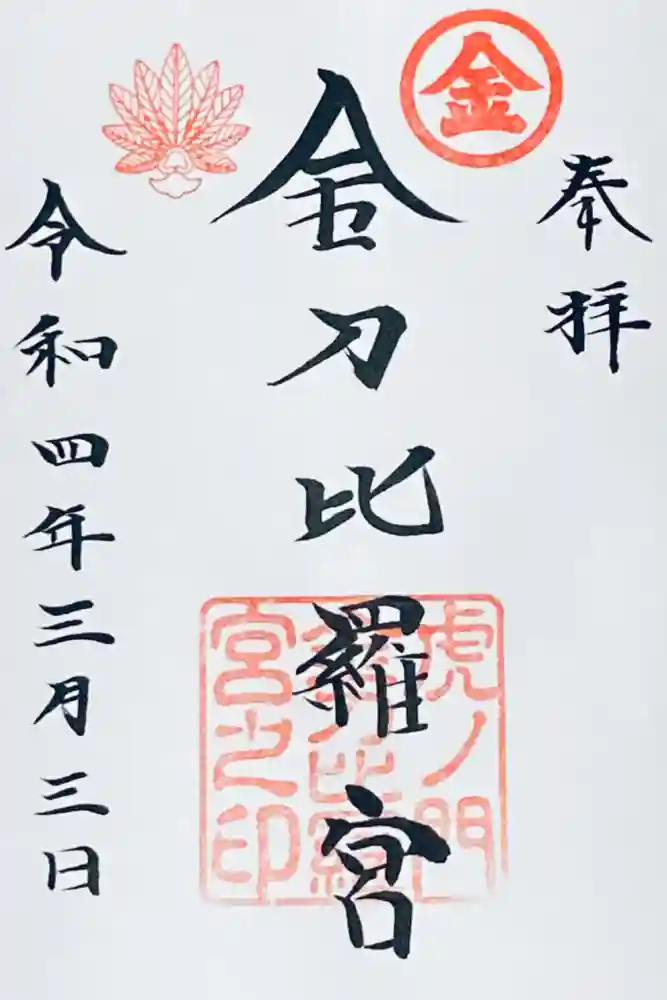 金
奉拝
金刀比羅宮
虎ノ門
金刀比羅
宮之印
令和四年三月三日